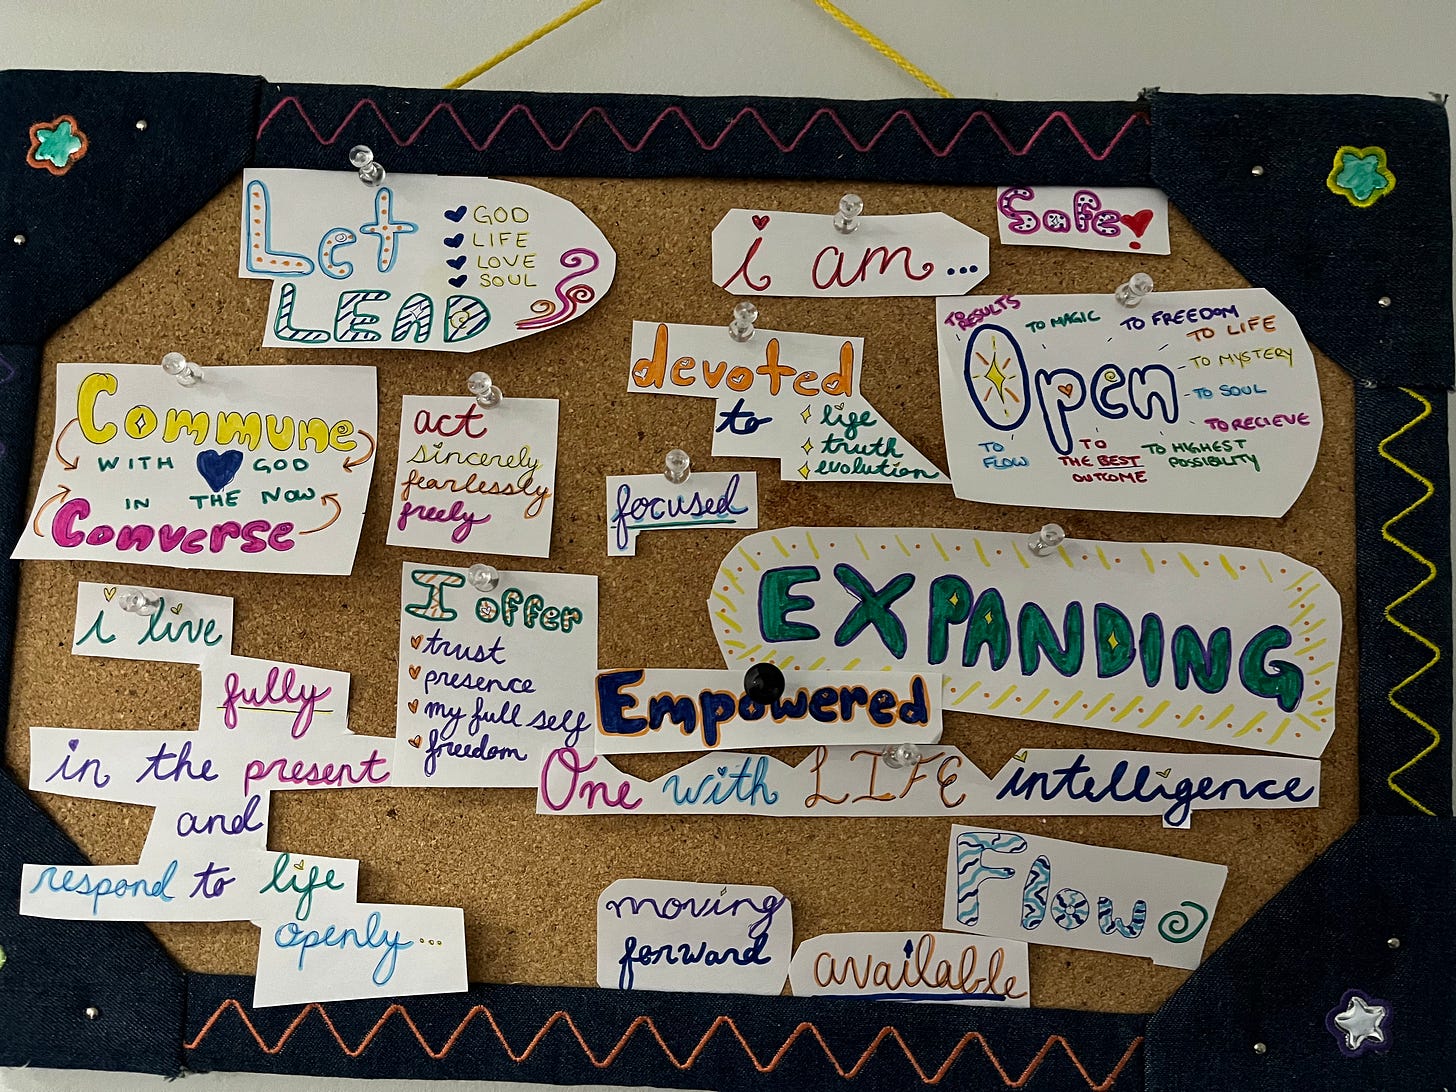 Let
GOD
LIFE
LOVE
SOUL
LEAD
i am...
Safe!
Commune
WITH GOD
IN THE NOW
Converse
act
sincerely
fearlessly
freely
devoted
to
life
truth
evolution
focused
TO RESULTS
TO MAGIC
TO FREEDOM
TO LIFE
TO MYSTERY
Open
TO SOUL
TO RECIEVE
TO HIGHEST POSSIBILITY
TO THE BEST OUTCOME
TO FLOW
i live
fully
in the present
and
respond to life
openly...
I offer
trust
presence
my full self
freedom
EXPANDING
Empowered
One with LIFE intelligence
Flow
moving
forward
available